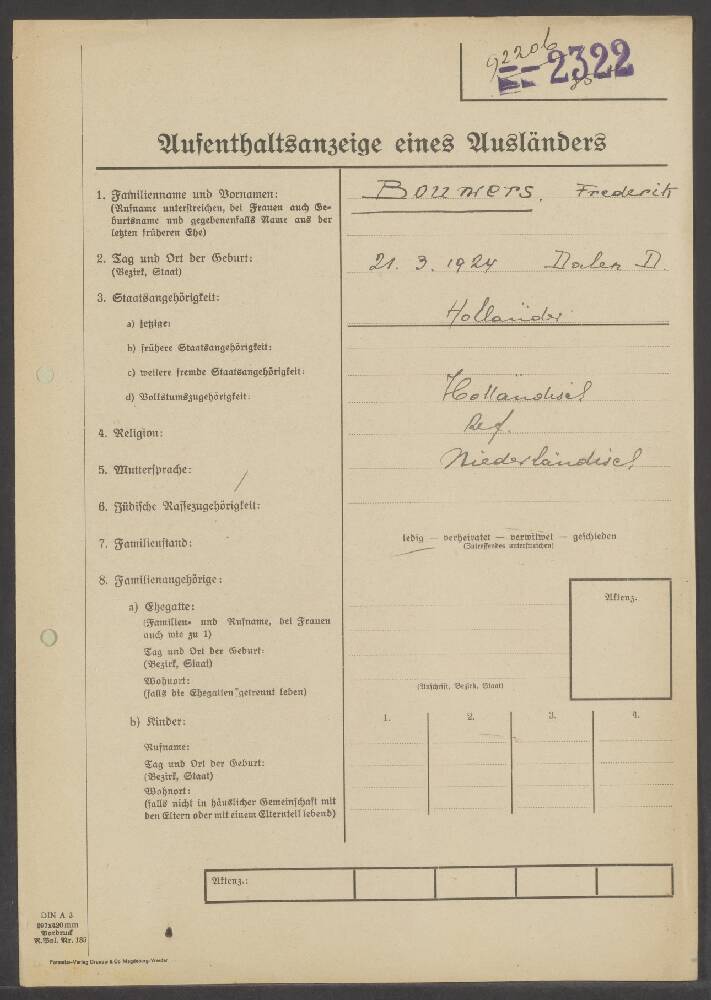 92206
2322
Aufenthaltsanzeige eines Ausländers
1. Familienname und Vornamen:
(Rufname unterstreichen, bei Frauen auch Ge-
burtsname und gegebenenfalls Name aus der
letzten früheren Ehe)
Bouwers, Frederik
2. Tag und Ort der Geburt:
(Bezirk, Staat)
21. 3. 1924 Dalen D.
3. Staatsangehörigkeit:
a) jetzige:
Holländer
b) frühere Staatsangehörigkeit:
c) weitere fremde Staatsangehörigkeit:
d) Volkstumszugehörigkeit:
Holländisch
4. Religion:
Ref.
5. Muttersprache:
Niederländisch
6. Jüdische Rassezugehörigkeit:
7. Familienstand:
ledig — verheiratet — verwitwet — geschieden
(Zutreffendes unterstreichen)
8. Familienangehörige:
a) Ehegatte:
(Familien- und Rufname, bei Frauen
auch wie zu 1)
Tag und Ort der Geburt:
(Bezirk, Staat)
Wohnort:
(falls die Ehegatten getrennt leben)
(Anschrift, Bezirk, Staat)
Aktenz.
b) Kinder:
1. 2. 3. 4.
Rufname:
Tag und Ort der Geburt:
(Bezirk, Staat)
Wohnort:
(falls nicht in häuslicher Gemeinschaft mit
den Eltern oder mit einem Elternteil lebend)
Aktenz.:
DIN A 3
297x420 mm
Vordruck
R.Pol. Nr. 186